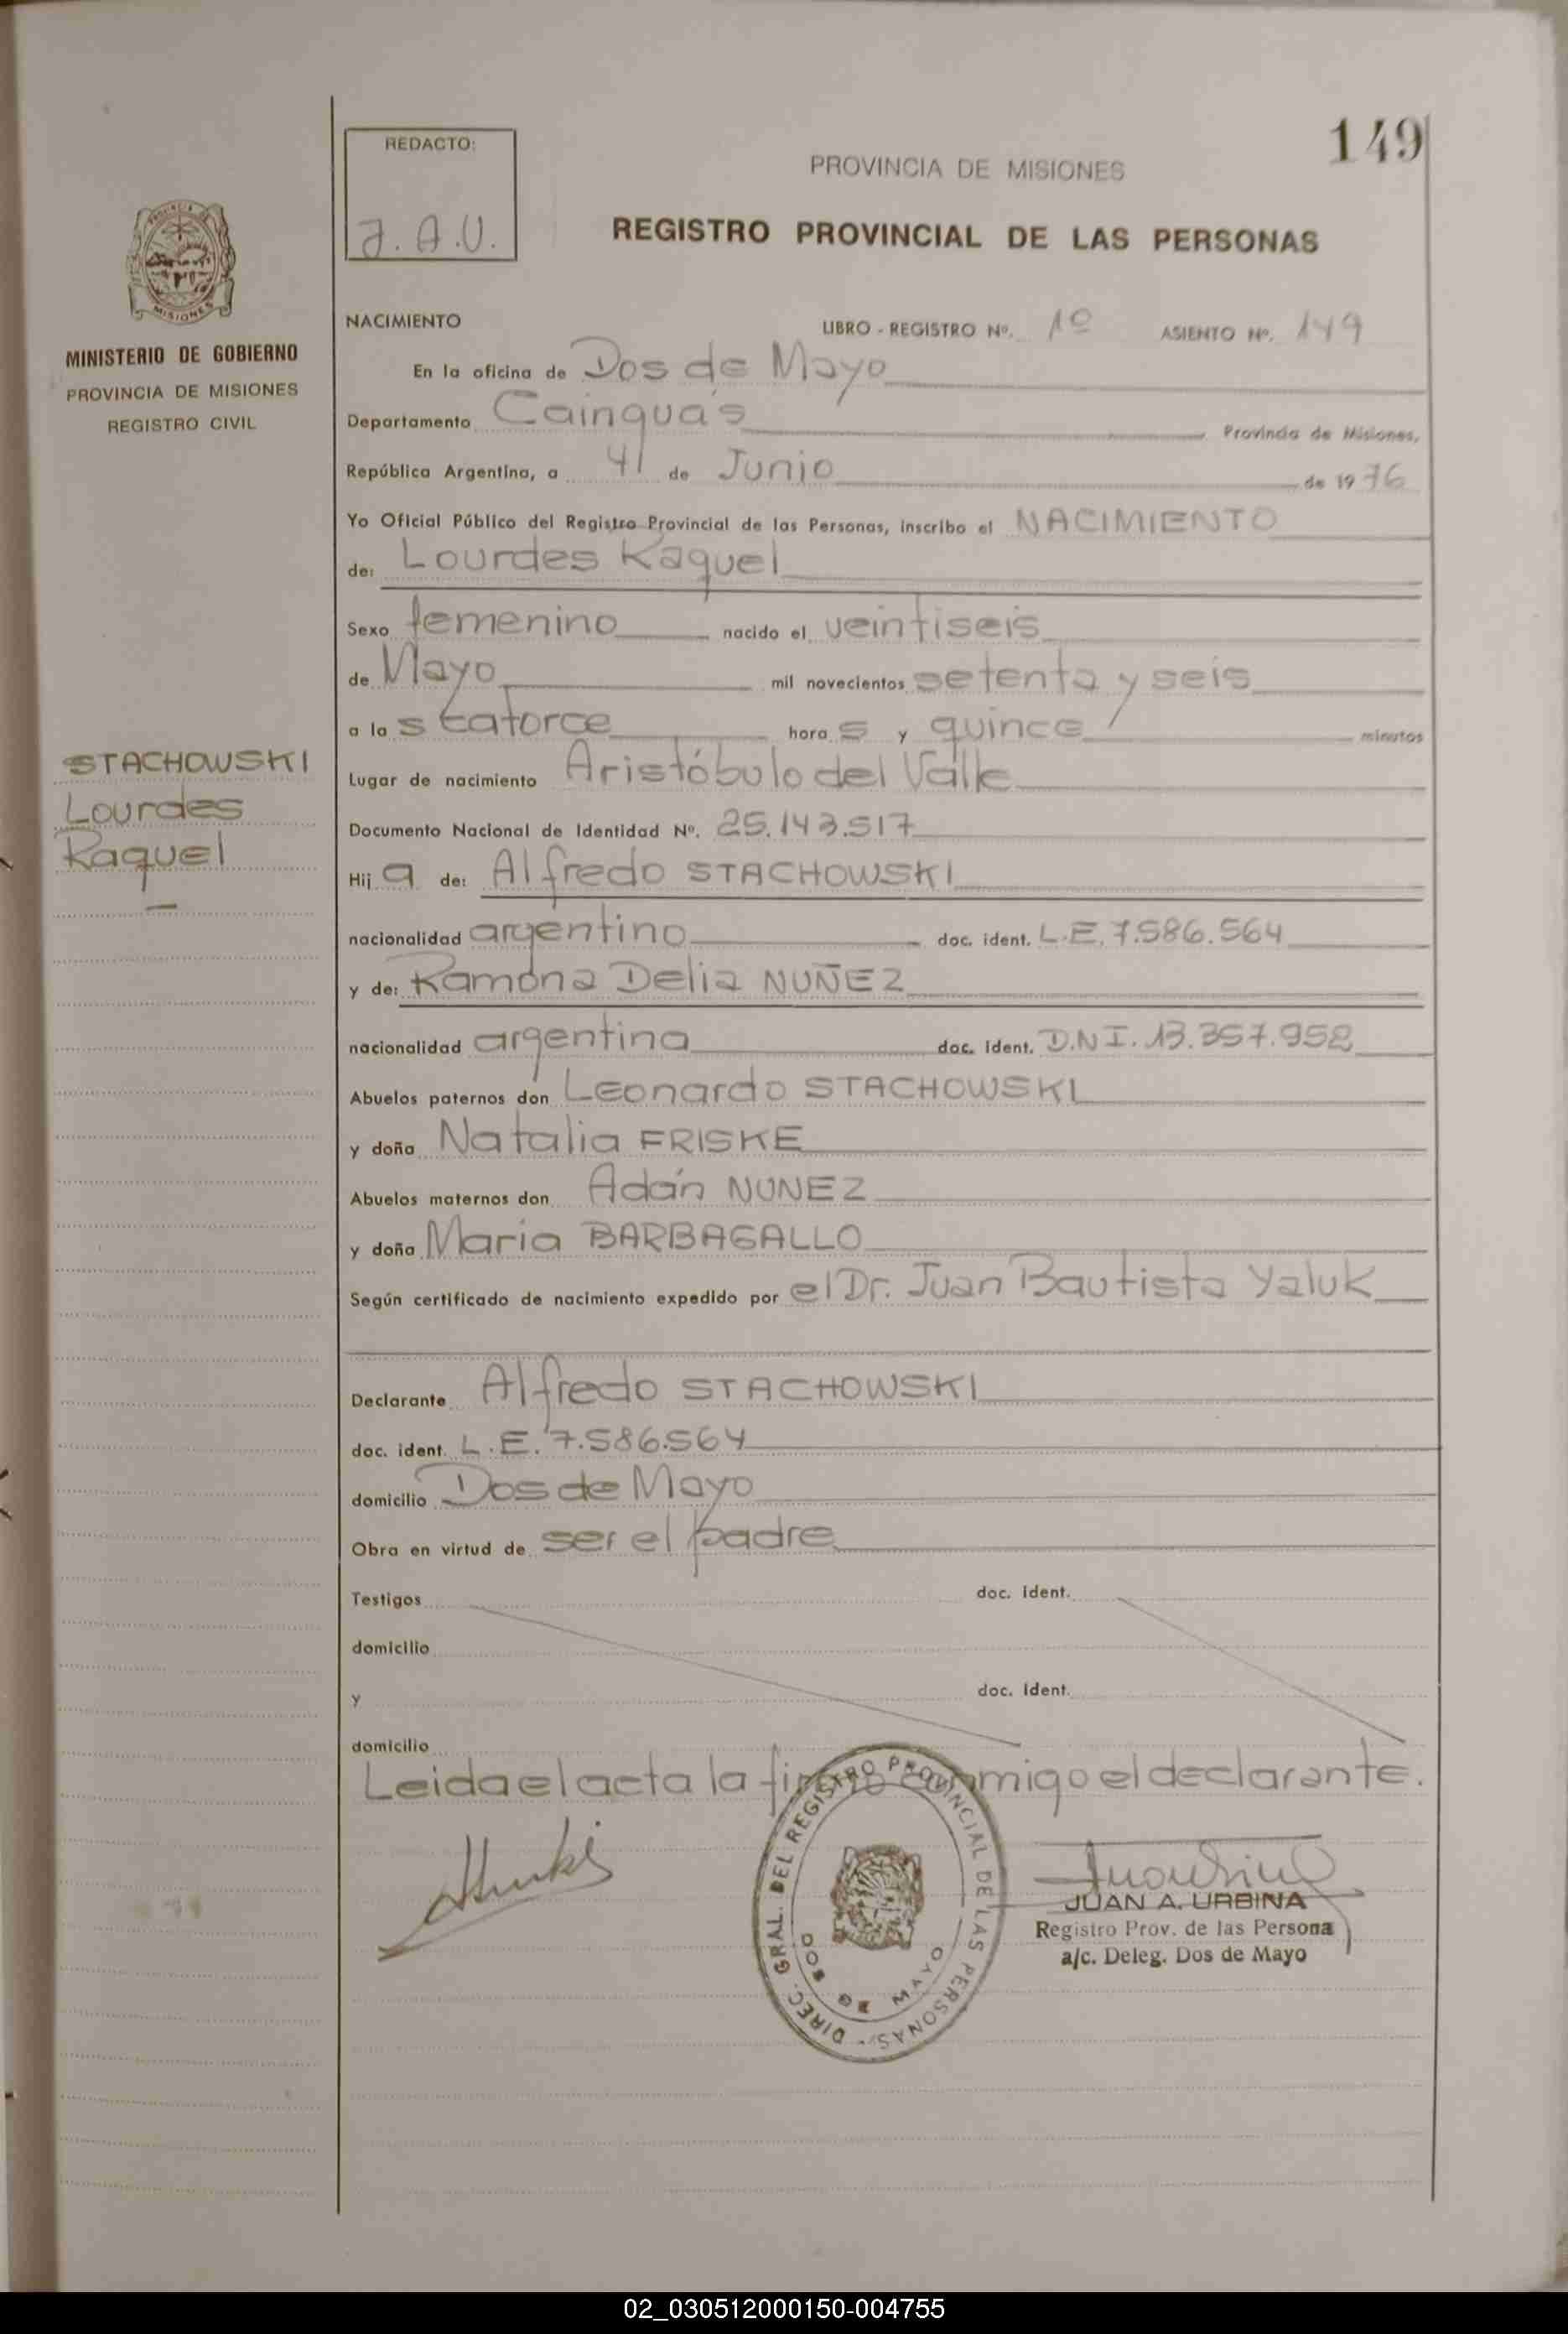 149
REDACTO:
J. A. U.
PROVINCIA DE MISIONES
REGISTRO PROVINCIAL DE LAS PERSONAS
MISIONES
MINISTERIO DE GOBIERNO
PROVINCIA DE MISIONES
REGISTRO CIVIL
STACHOWSKI
Lourdes
Raquel
NACIMIENTO LIBRO - REGISTRO Nº. 1º ASIENTO Nº. 149
En la oficina de Dos de Mayo
Departamento Cainguás Provincia de Misiones,
República Argentina, a de Junio de 1976
Yo Oficial Público del Registro Provincial de las Personas, inscribo el NACIMIENTO
de: Lourdes Raquel
Sexo femenino nacido el veintiseis
de Mayo mil novecientos setenta y seis
a las catorce horas y quince minutos
Lugar de nacimiento Aristóbulo del Valle
Documento Nacional de Identidad Nº. 25.143.517
Hija de: Alfredo STACHOWSKI
nacionalidad argentino doc. ident. L.E. 7.586.564
y de: Ramona Delia NUÑEZ
nacionalidad argentina doc. ident. D.N.I. 13.357.952
Abuelos paternos don Leonardo STACHOWSKI
y doña Natalia FRISKE
Abuelos maternos don Adán NUNEZ
y doña Maria BARBAGALLO
Según certificado de nacimiento expedido por el Dr. Juan Bautista Yaluk
Declarante Alfredo STACHOWSKI
doc. ident. L.E. 7.586.564
domicilio Dos de Mayo
Obra en virtud de ser el padre
Testigos doc. ident.
domicilio
y doc. ident.
domicilio
Leida el acta la firma conmigo el declarante.
DIREC. GRAL. DEL REGISTRO PROVINCIAL DE LAS PERSONAS -
DOS DE MAYO
JUAN A. URBINA
Registro Prov. de las Persona
a/c. Deleg. Dos de Mayo
02_030512000150-004755